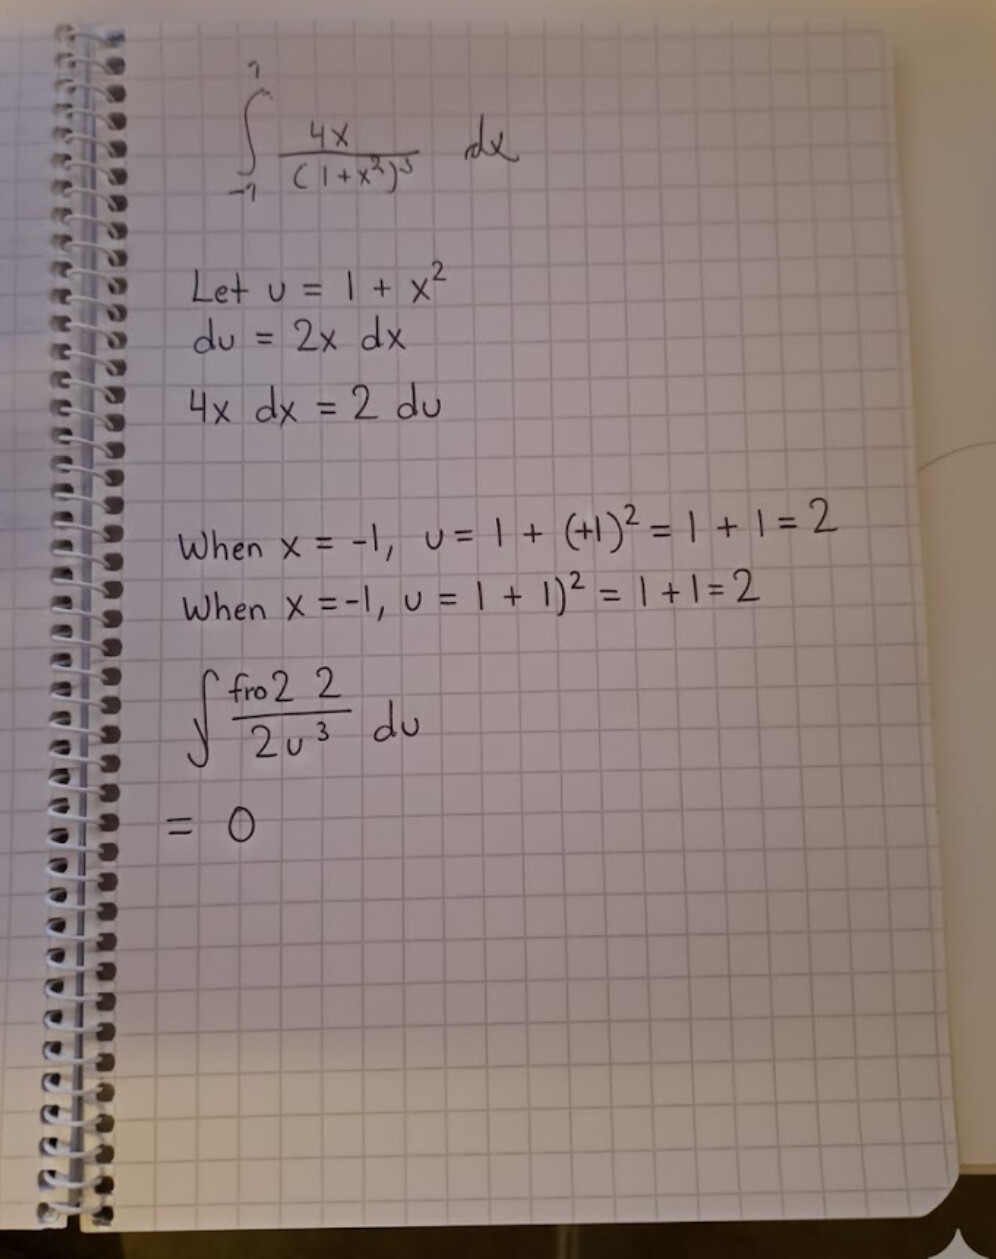 ∫_{-1}^{1} 4x / (1+x²)³ dx
Let u = 1 + x²
du = 2x dx
4x dx = 2 du
When x = -1, u = 1 + (+1)² = 1 + 1 = 2
When x = -1, u = 1 + 1)² = 1 + 1 = 2
∫ fro2 2 / 2u³ du
= 0